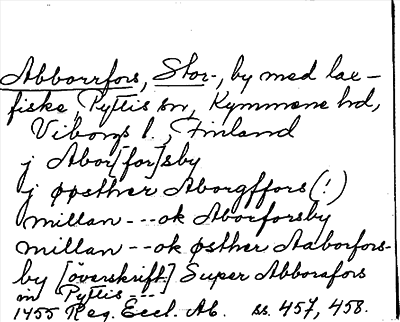 Abborrfors, Stor-, by med lax-
fiske, Pyttis sn, Kymmene hd,
Viborgs l., Finland
j Abor[for]sby
j øpsther Aborgffors (!)
millan --- ok Aborforsby
millan --- ok østher Aaborfors-
by [överskrift] Super Abborafors
in Pyttis ---
1455 Reg. Eccl. Ab. ss. 457, 458.